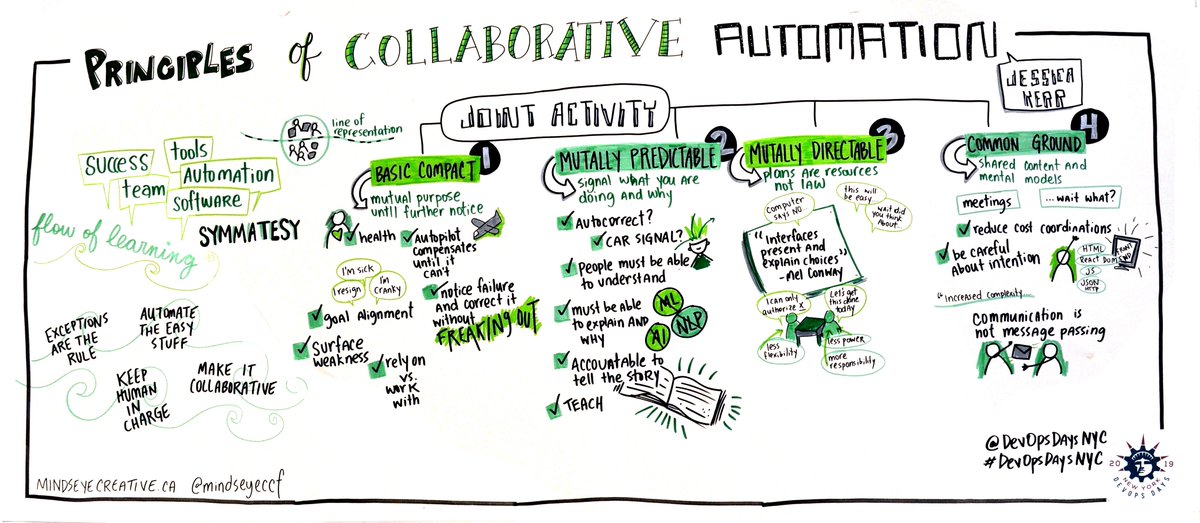 PRINCIPLES of COLLABORATIVE AUTOMATION
JESSICA
KERR
JOINT ACTIVITY
line of
representation
SUCCESS
tools
team
Automation
Software
flow of learning
SYMMATESY
EXCEPTIONS
ARE THE
RULE
AUTOMATE
THE EASY
STUFF
KEEP
HUMAN
IN
CHARGE
MAKE IT
COLLABORATIVE
1
BASIC COMPACT
mutual purpose
until further notice
health
Autopilot
compensates
until it
can't
I'm sick
I resign
I'm
cranky
notice failure
and correct it
without
FREAKING OUT
goal alignment
Surface
weakness
rely on
vs.
work
with
2
MUTALLY PREDICTABLE
signal what you are
doing and why
Autocorrect?
CAR SIGNAL?
People must be able
to understand
must be able
to explain AND
WHY
ML
NLP
AI
Accountable to
tell the story
TEACH
3
MUTALLY DIRECTABLE
plans are resources
not law
Computer
SAYS NO
this will
be easy
wait did
you think
About...
"Interfaces
present and
explain choices"
-Mel Conway
I can only
authorize X
Let's get
this done
today
less
flexibility
less power
more
responsibility
4
COMMON GROUND
shared content and
mental models
meetings
...wait what?
reduce cost coordinations
be careful
About intention
HTML
React Dom
JS
JSON
HTTP
FRONT
END
"increased complexity...
Communication is
not message passing
@DevOpsDaysNYC
#DevOpsDaysNYC
2019
NEW YORK
DEVOPS DAYS
MINDSEYECREATIVE.CA @mindseyeccf